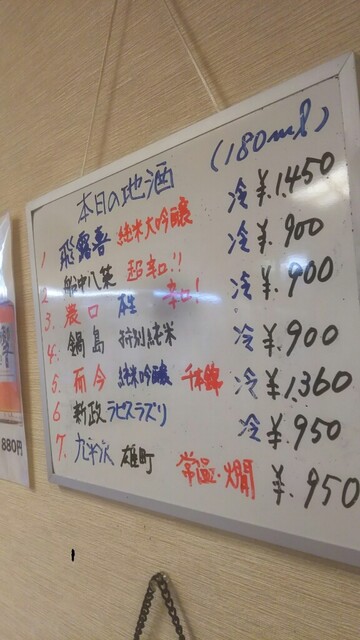 本日の地酒 (180ml)
1 飛露喜 純米大吟醸 冷 ¥.1450
2 船中八策 超辛口!! 冷 ¥.900
3. 農口 本生 辛口! 冷 ¥.900
4. 鍋島 特別純米 冷 ¥.900
5. 而今 純米吟醸 千本錦 冷 ¥.1,360
6 新政 ラピスラズリ 冷 ¥.950
7. 九平次 雄町 常温・燗 ¥.950
880円